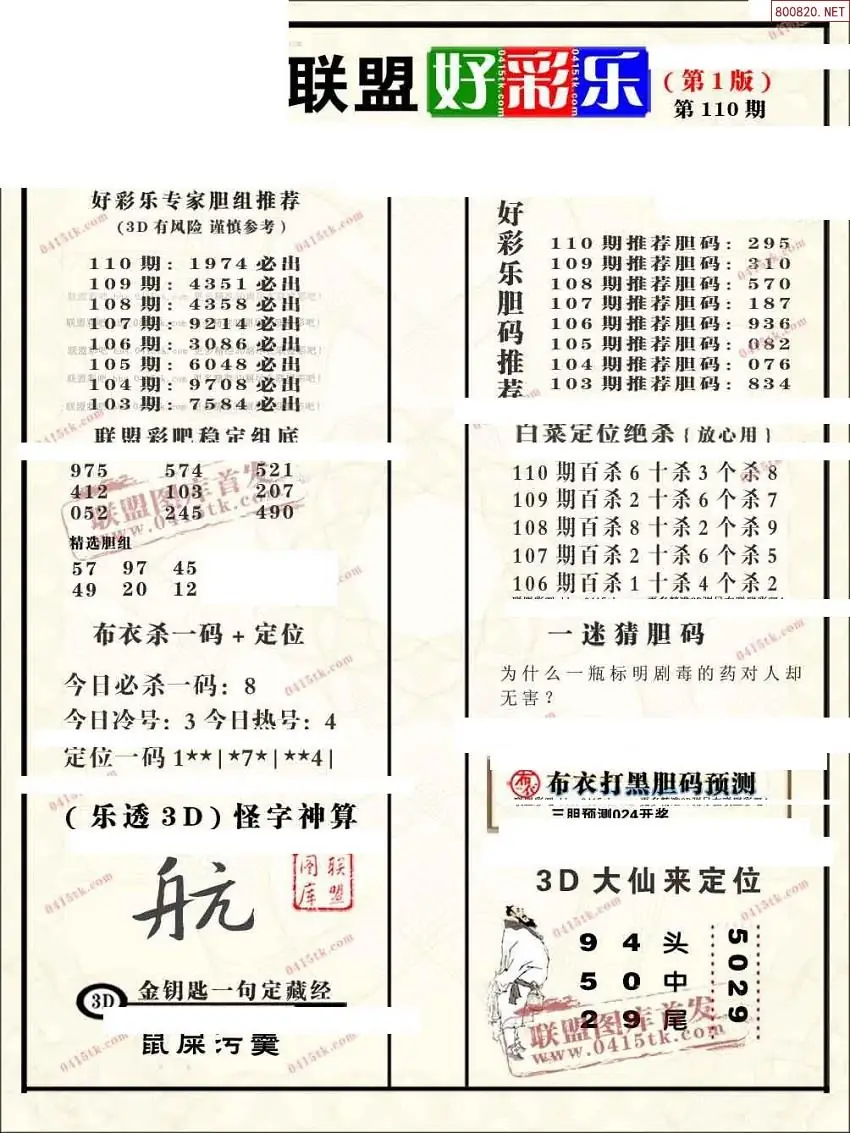 800820.NET
联盟好彩乐
(第1版)
第110期
好彩乐专家胆组推荐
(3D有风险 谨慎参考)
110期: 1974必出
109期: 4351必出
108期: 4358必出
107期: 9214必出
106期: 3086必出
105期: 6048必出
104期: 9708必出
103期: 7584必出
联盟彩吧稳定组底
975 574 521
412 103 207
052 245 490
精选胆组
57 97 45
49 20 12
布衣杀一码+定位
今日必杀一码: 8
今日冷号: 3 今日热号: 4
定位一码1**|*7*|**4|
(乐透3D)怪字神算
航
联盟图库
3D 金钥匙一句定藏经
鼠屎污羹
好彩乐胆码推荐
110期推荐胆码: 295
109期推荐胆码: 310
108期推荐胆码: 570
107期推荐胆码: 187
106期推荐胆码: 936
105期推荐胆码: 082
104期推荐胆码: 076
103期推荐胆码: 834
白菜定位绝杀{放心用}
110期百杀6十杀3个杀8
109期百杀2十杀6个杀7
108期百杀8十杀2个杀9
107期百杀2十杀6个杀5
106期百杀1十杀4个杀2
一迷猜胆码
为什么一瓶标明剧毒的药对人却
无害?
布衣 布衣打黑胆码预测
三胆预测024开奖
3D大仙来定位
9 4 头
5 0 中
2 9 尾
5029
联盟图库首发
www.0415tk.com
联盟图库首发
www.0415tk.com
0415tk.com